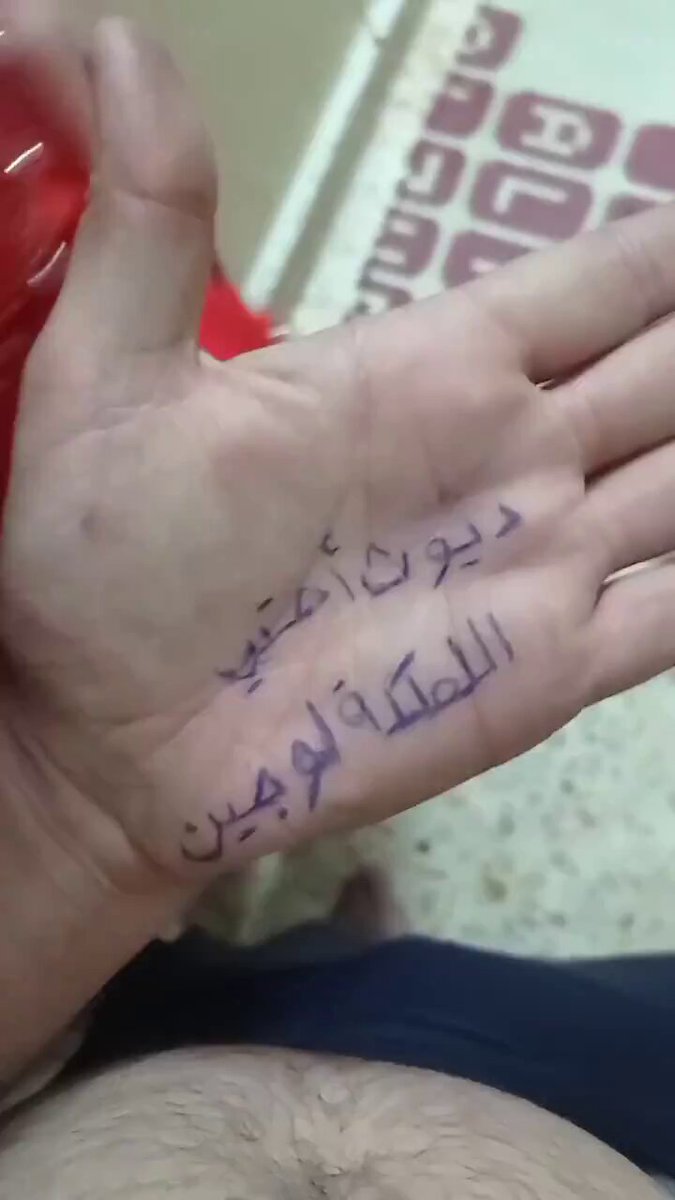 ديوث أختي
الملكة لوجين